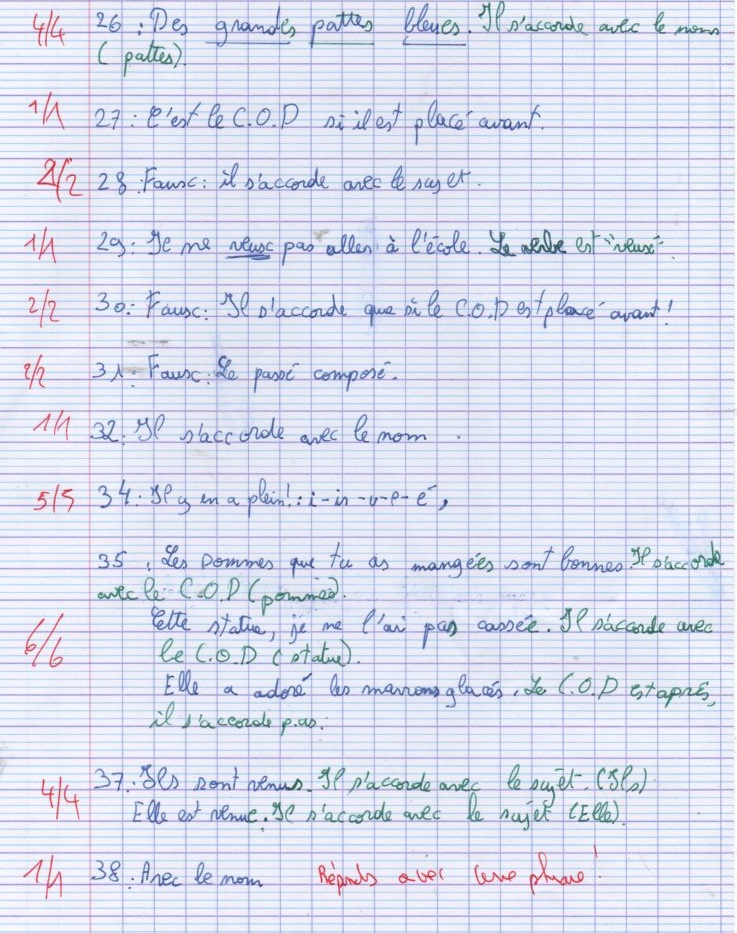 4/4 26 : Des grandes pattes bleues. Il s'accorde avec le noms
( pattes).
1/1 27 : C'est le C.O.D si il est placé avant.
2/2 28 : Faux : il s'accorde avec le sujet.
1/1 29 : Je ne veux pas aller à l'école. Le verbe est "veux".
2/2 30 : Faux : Il s'accorde que si le C.O.D est placé avant !
2/2 31 : Faux : Le passé composé.
1/1 32 : Il s'accorde avec le nom .
5/5 34 : Il y en a plein! : i-is-u-e-é,
35 . Les pommes que tu as mangées sont bonnes. Il s'accorde
avec le C.O.D (pommes).
6/6 Cette statue, je ne l'ai pas cassée. Il s'accorde avec
le C.O.D (statue).
Elle a adoré les marrons glacés. Le C.O.D est après,
il s'accorde pas.
4/4 37. Ils sont venus. Il s'accorde avec le sujet. (Ils)
Elle est venue. Il s'accorde avec le sujet (Elle).
1/1 38. Avec le nom Réponds avec une phrase !